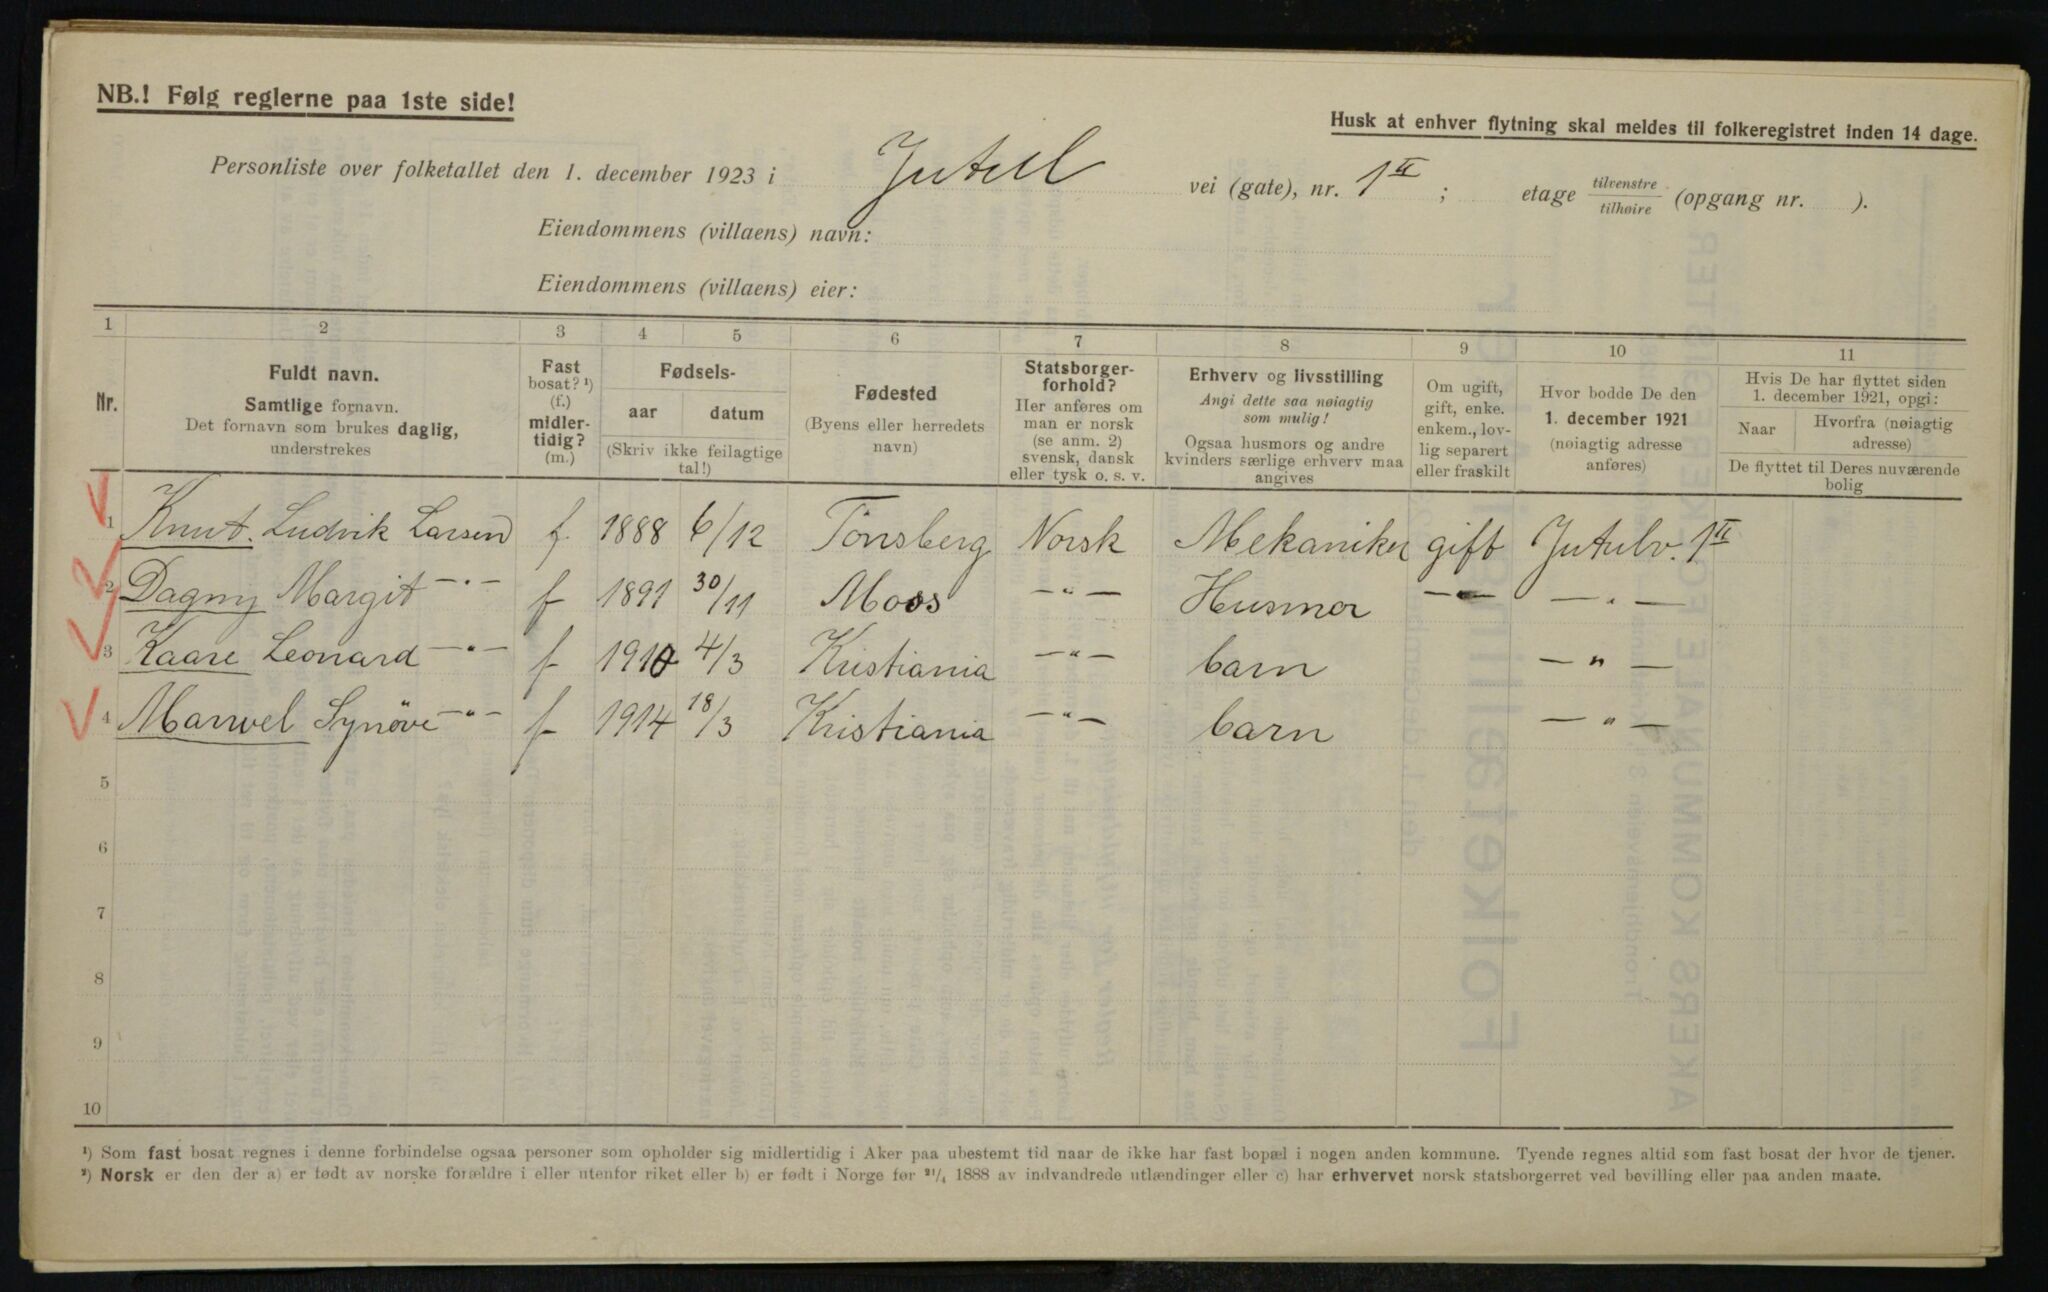 NB.! Følg reglerne paa 1ste side!
Husk at enhver flytning skal meldes til folkeregistret inden 14 dage.
Personliste over folketallet den 1. december 1923 i Jutul vei (gate), nr. 1 II ; etage tilvenstre / tilhøire (opgang nr. ).
Eiendommens (villaens) navn:
Eiendommens (villaens) eier:
1 2 3 4 5 6 7 8 9 10 11
Nr.
Fuldt navn.
Samtlige fornavn.
Det fornavn som brukes daglig,
understrekes
Fast
bosat? ¹)
(f.)
midler-
tidig?
(m.)
Fødsels-
aar datum
(Skriv ikke feilagtige
tal!)
Fødested
(Byens eller herredets
navn)
Statsborger-
forhold?
Her anføres om
man er norsk
(se anm. 2)
svensk, dansk
eller tysk o. s. v.
Erhverv og livsstilling
Angi dette saa nøiagtig
som mulig!
Ogsaa husmors og andre
kvinders særlige erhverv maa
angives
Om ugift,
gift, enke.
enkem., lov-
lig separert
eller fraskilt
Hvor bodde De den
1. december 1921
(nøiagtig adresse
anføres)
Hvis De har flyttet siden
1. december 1921, opgi:
Naar Hvorfra (nøiagtig
adresse)
De flyttet til Deres nuværende
bolig
1 Knut. Ludvik Larsen f. 1888 6/12 Tönsberg Norsk Mekaniker gift Jutulv. 1 II
2 Dagny Margit —"— f 1891 30/11 Moss —"— Husmor —"— —"—
3 Kaare Leonard —"— f 1910 4/3 Kristiania —"— barn —"—
4 Marwel Synöve —"— f 1914 18/3 Kristiania —"— barn —"—
5
6
7
8
9
10
¹) Som fast bosat regnes i denne forbindelse ogsaa personer som opholder sig midlertidig i Aker paa ubestemt tid naar de ikke har fast bopæl i nogen anden kommune. Tyende regnes altid som fast bosat der hvor de tjener.
²) Norsk er den der a) er født av norske forældre i eller utenfor riket eller b) er født i Norge før ²¹/₄ 1888 av indvandrede utlændinger eller c) har erhvervet norsk statsborgerret ved bevilling eller paa anden maate.